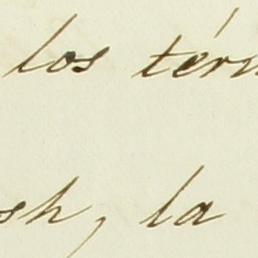 los térm
sh, la